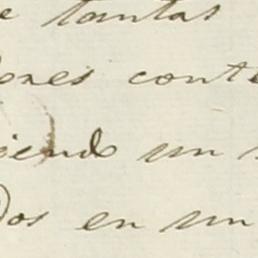 e tantas
ones conte
iendo un
dos en un